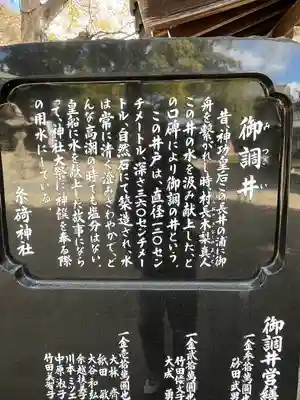 御調井
みつ
昔、神功皇后この長井の浦に御
舟を繋がれし時、村長木梨真人
この井の水を汲み献上した、と
の口碑により御調の井という。
この井戸は、直径一二〇センチ
チメートル、深さ三六〇センチメー
トル、自然石にて築造され、水
は常に清く、澄みさわやかで、ど
んな高潮の時でも塩分はない。
皇船に水を献上した故事になら
って、神社大祭に、神饌を奉る際
の用水にしている。
糸碕神社
御調井営繕
一金参拾萬圓也
砂田武
一金弐拾萬圓也
竹田
大成勇
一金壱拾萬圓也
大林斉
紙田敏
大谷和
余越
川本
中原淑子
竹田美智子